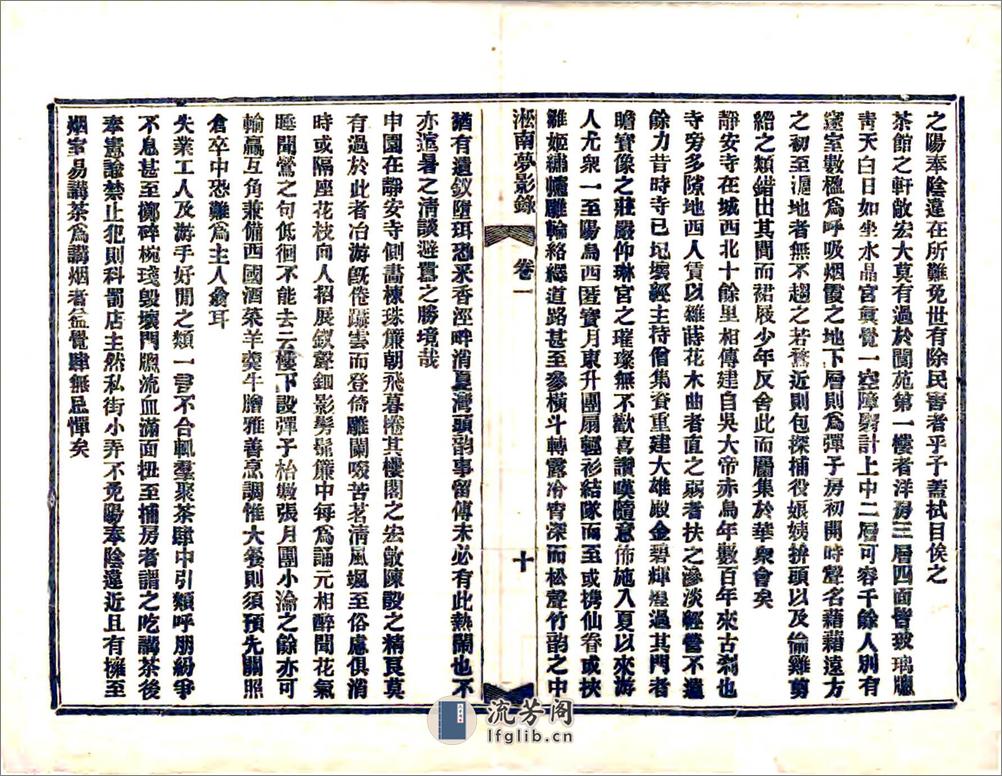 之陽奉陰違在所難免世有除民害者乎予蓋拭目俟之
茶館之軒敞宏大莫有過於閬苑第一樓者洋房三層四面皆玻璃牕
青天白日如坐水晶宮眞覺一空障翳計上中二層可容千餘人別有
邃室數楹爲呼吸烟霞之地下層則爲彈子房初開時聲名藉藉遠方
之初至滬地者無不趨之若鶩近則包探捕役娘姨拚頭以及偷雞剪
綹之類錯出其間而裙屐少年反舍此而麕集於華衆會矣
靜安寺在城西北十餘里相傳建自吳大帝赤烏年數百年來古刹也
寺旁多隙地西人賃以雜蒔花木曲者直之弱者扶之滲淡經營不遺
餘力昔時寺已圮壞經主持僧集資重建大雄殿金碧輝煌過其門者
瞻寶像之莊嚴仰琳宮之璀璨無不歡喜讚嘆隨意佈施入夏以來游
人尤衆一至陽烏西匿寶月東升團扇輕衫結隊而至或携仙眷或挾
雛姬繡幰雕輪絡繹道路甚至參橫斗轉露冷宵深而松聲竹韵之中
淞南夢影錄
卷一
十
猶有遺釵墮珥恐釆香涇畔消夏灣頭韵事留傳未必有此熱鬧也不
亦逭暑之清談避囂之勝境哉
申園在靜安寺側畵棟珠簾朝飛暮捲其樓閣之宏敞陳設之精良莫
有過於此者冶游旣倦躡雲而登倚雕闌啜苦茗清風颯至俗慮俱消
時或隔座花枝向人招展釵聲鈿影髣髴簾中每爲誦元相醉聞花氣
睡聞鶯之句低徊不能去云樓下設彈子枱墩張月團小淪之餘亦可
輸贏互角兼備西國酒菜羊羮牛膾雅善烹調惟大餐則須預先關照
倉卒中恐難爲主人翁耳
失業工人及游手好閒之類一言不合輒羣聚茶肆中引類呼朋紛爭
不息甚至擲碎碗琖毁壞門牕流血滿面扭至捕房者謂之吃講茶後
奉憲諭禁止犯則科罰店主然私街小弄不免陽奉陰違近且有擁至
烟室易講茶爲講烟者益覺肆無忌憚矣
流芳阁
lfglib.cn